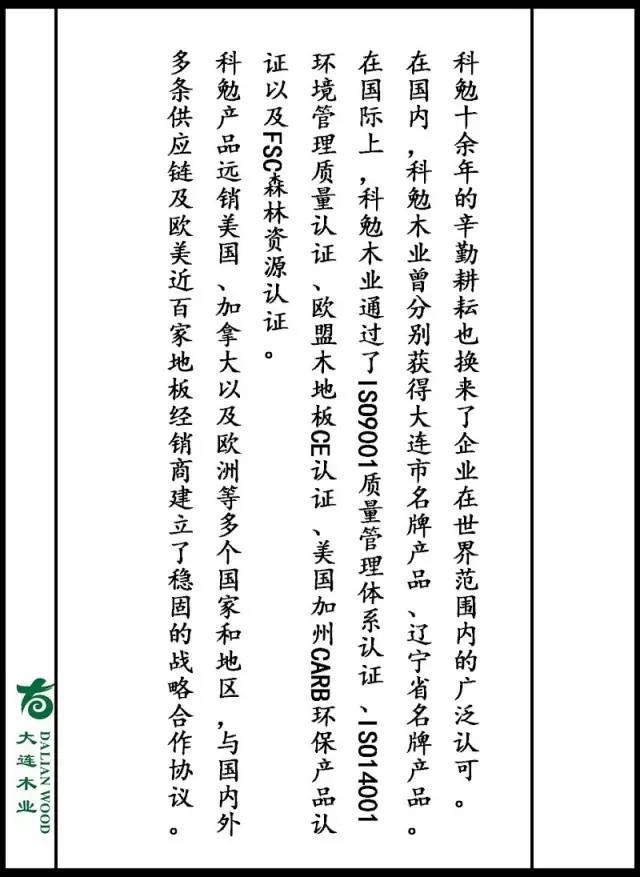 科勉十余年的辛勤耕耘也换来了企业在世界范围内的广泛认可。
在国内，科勉木业曾分别获得大连市名牌产品、辽宁省名牌产品。
在国际上，科勉木业通过了ISO9001质量管理体系认证、ISO14001
环境管理质量认证、欧盟木地板CE认证、美国加州CARB环保产品认
证以及FSC森林资源认证。
科勉产品远销美国、加拿大以及欧洲等多个国家和地区，与国内外
多条供应链及欧美近百家地板经销商建立了稳固的战略合作协议。
大连木业
DALIAN WOOD